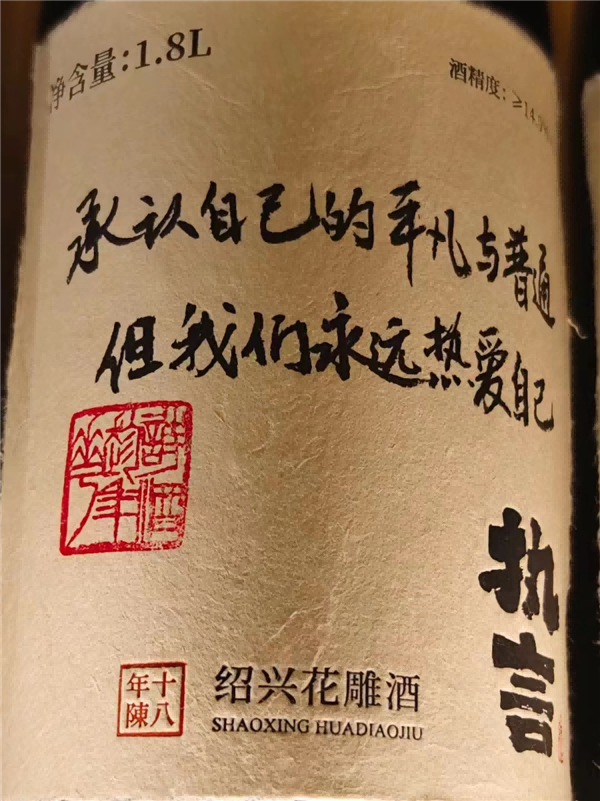 净含量:1.8L
酒精度:≥14.
承认自己的平凡与普通
但我们永远热爱自己
诗酒
趁年华
执言
十八
年陳
绍兴花雕酒
SHAOXING HUADIAOJIU